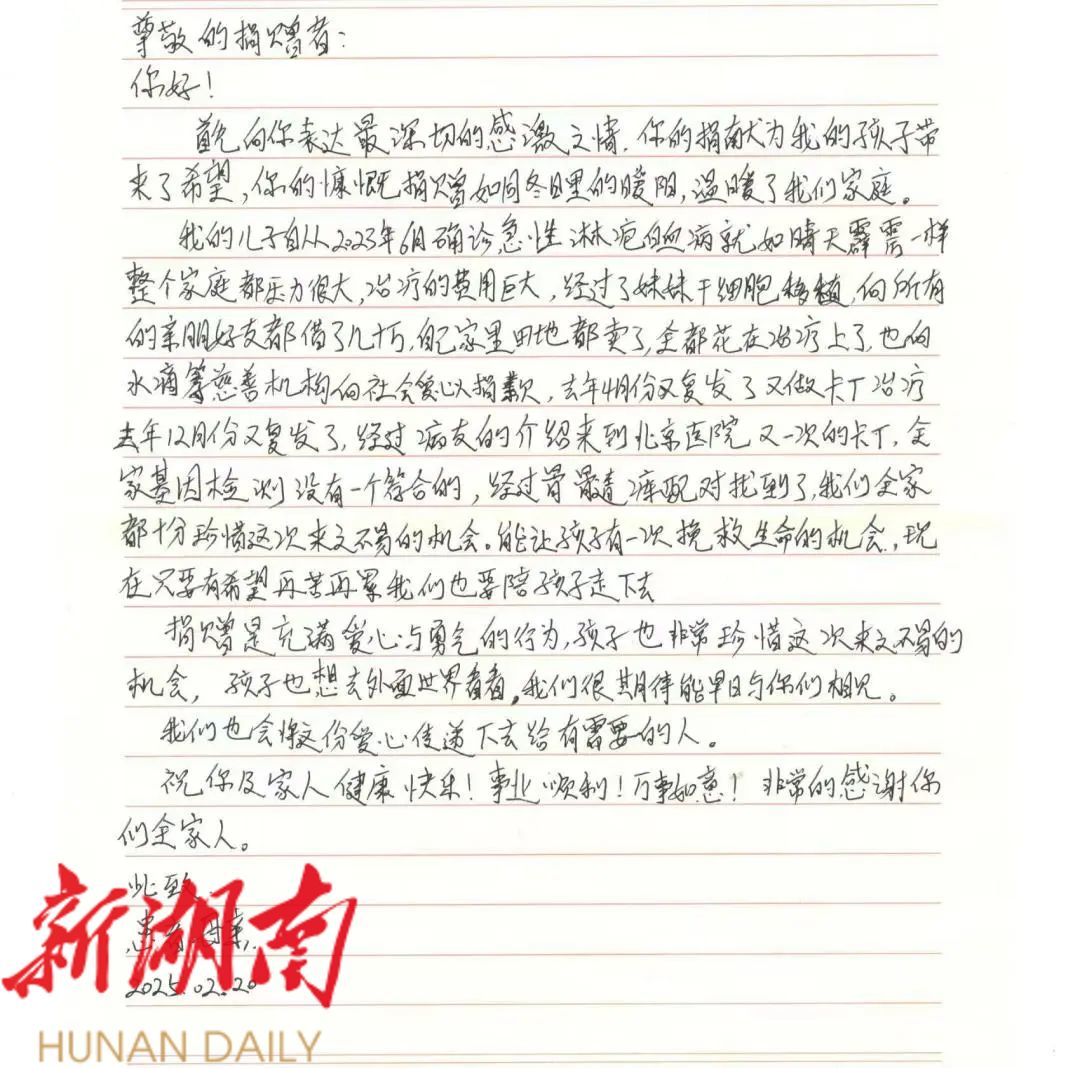 尊敬的捐赠者：
你好！
首先向你表达最深切的感激之情．你的捐献为我的孩子带
来了希望，你的慷慨捐赠如同冬日里的暖阳，温暖了我们家庭。
我的儿子自从2023年6月确诊急性淋疤白血病就如晴天霹雳一样
整个家庭都压力很大，治疗的费用巨大，经过了妹妹干细胞移植，向所有
的亲朋好友都借了几十万，自己家里田地都卖了，全都花在治疗上了，也向
水滴筹慈善机构向社会爱心人捐款，去年4月份又复发了又做卡丁治疗
去年12月份又复发了，经过病友的介绍来到北京医院又一次的卡丁，全
家基因检测没有一个符合的，经过骨髓库配对找到了，我们全家
都十分珍惜这次来之不易的机会。能让孩子有一次挽救生命的机会，现
在只要有希望再苦再累我们也要陪孩子走下去
捐赠是充满爱心与勇气的行为，孩子也非常珍惜这次来之不易的
机会，孩子也想去外面世界看看，我们很期待能早日与你们相见。
我们也会将这份爱心传递下去给有需要的人。
祝你及家人健康快乐！事业顺利！万事如意！非常的感谢你
们全家人。
此致．
患者母亲．
2025.02.20
新湖南
HUNAN DAILY